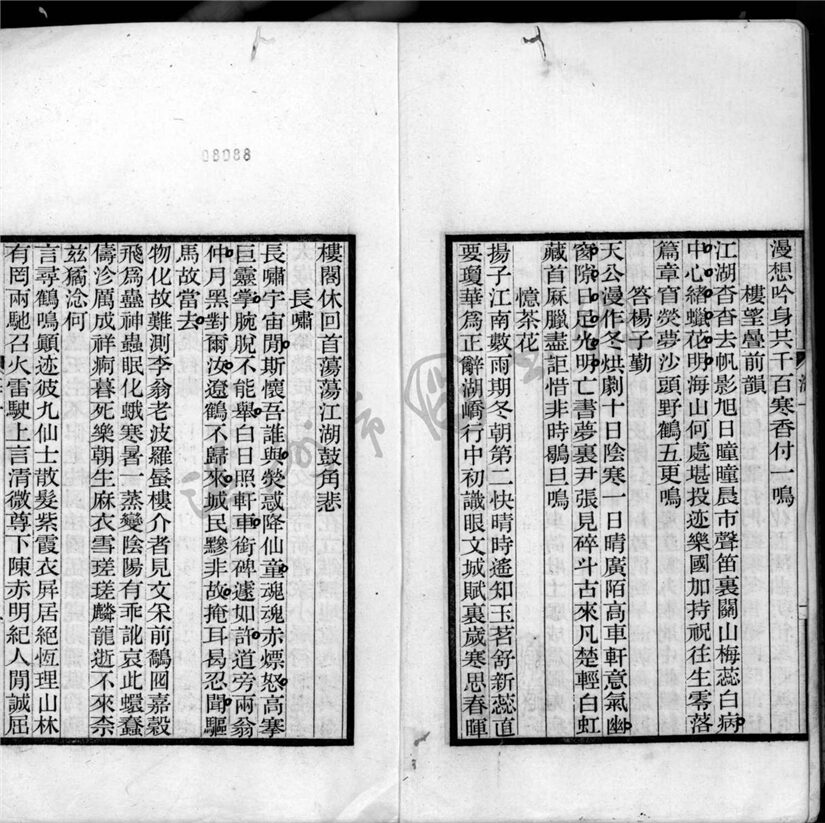 漫想吟身共千百寒香付一鳴
樓望疊前韻
江湖杳杳去帆影旭日曈曈晨市聲笛裏關山梅蕊白病
中心緒蠟花明海山何處堪投迹樂國加持祝往生零落
篇章官熒夢沙頭野鶴五更鳴
答楊子勤
天公漫作冬烘劇十日陰寒一日晴廣陌高車軒意氣幽
窗隙日足光明亡書夢裏尹張見碎斗古來凡楚輕白虹
藏首麻臘盡詎惜非時鶡旦鳴
憶茶花
揚子江南數雨期冬朝第二快晴時遙知玉茗舒新蕊直
要瓊華爲正辭湖嶠行中初識眼文城賦裏歲寒思春暉
樓閣休回首蕩蕩江湖鼓角悲
長嘯
長嘯宇宙閒斯懷吾誰與熒惑降仙童魂魂赤熛怒高搴
巨靈掌腕脫不能舉白日照軒車銜碑遽如許道旁兩翁
仲月黑對爾汝遼鶴不歸來城民黲非故掩耳曷忍聞驅
馬故當去
物化故難測李翁老波羅蜃樓介者見文采前鷸囮嘉穀
飛爲蟲神蟲眠化蛾寒暑一蒸變陰陽有乖訛哀此蠉蠢
儔沴厲成祥痾暮死樂朝生麻衣雪瑳瑳麟龍逝不來柰
茲獝淰何
言尋鶴鳴顚迹彼九仙士散髮紫霞衣屏居絕恆理山林
有罔兩馳召火雷駛上言清微尊下陳赤明紀人閒誠屈
08088